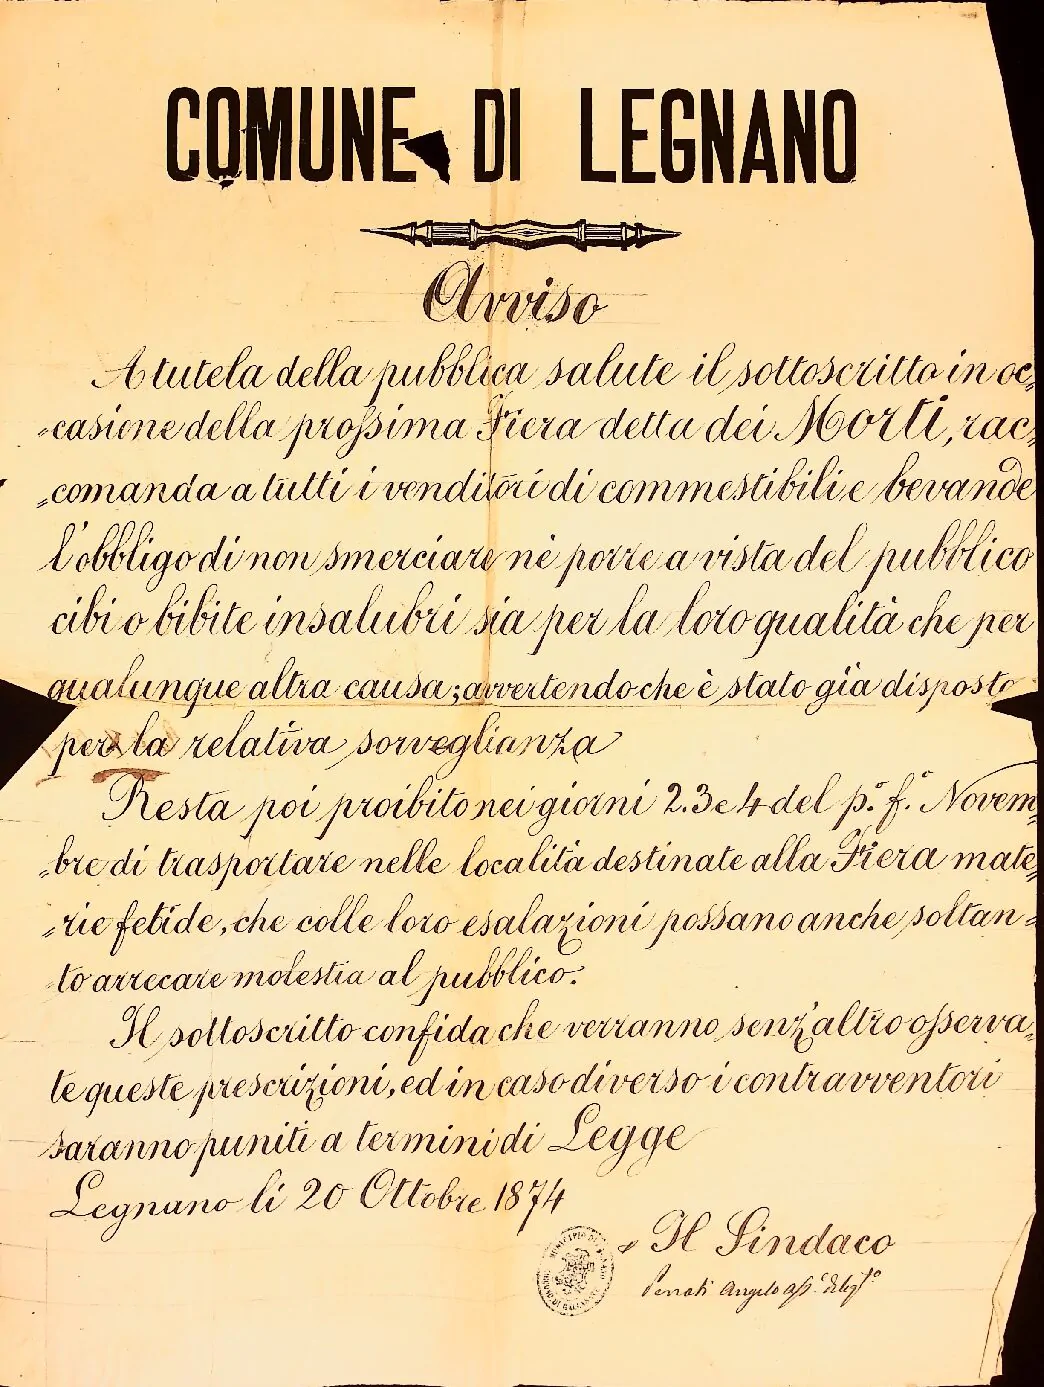 COMUNE DI LEGNANO
Avviso
A tutela della pubblica salute il sottoscritto in oc=
=casione della prossima Fiera detta dei Morti, rac=
=comanda a tutti i venditori di commestibili e bevande
l'obbligo di non smerciare nè porre a vista del pubblico
cibi o bibite insalubri sia per la loro qualità che per
qualunque altra causa; avvertendo che è stato già disposto
per la relativa sorveglianza
Resta poi proibito nei giorni 2.3 e 4 del p.° f.° Novem=
=bre di trasportare nelle località destinate alla Fiera mate=
=rie fetide, che colle loro esalazioni possano anche soltan=
=to arrecare molestia al pubblico.
Il sottoscritto confida che verranno senz'altro osserva=
te queste prescrizioni, ed in caso diverso i contravventori
saranno puniti a termini di Legge
Legnano li 20 Ottobre 1874
Il Sindaco
Penati Angelo ass.e
MUNICIPIO DI